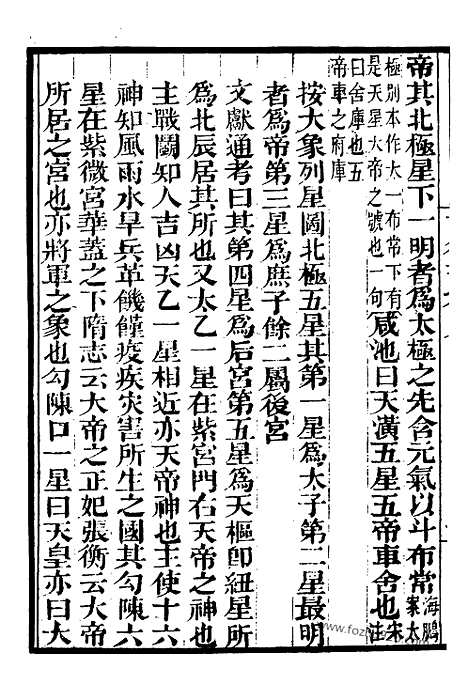 帝其北極星下一明者爲太極之先含元氣以斗布常海鵬案太
極別本作大一布常下有是天星大帝之號也一句咸池曰天潢五星五帝車舍也宋注
曰舍庫也五帝車之府庫
按大象列星圖北極五星其第一星爲太子第二星最明
者爲帝第三星爲庶子餘二屬後宮
文獻通考曰其第四星爲后宮第五星爲天樞卽紐星所
爲北辰居其所也又太乙一星在紫宮門右天帝之神也
主戰鬭知人吉凶天乙一星相近亦天帝神也主使十六
神知風雨水旱兵革饑饉疫疾灾害所生之國其勾陳六
星在紫微宮華蓋之下隋志云大帝之正妃張衡云大帝
所居之宮也亦將軍之象也勾陳口一星曰天皇亦曰大